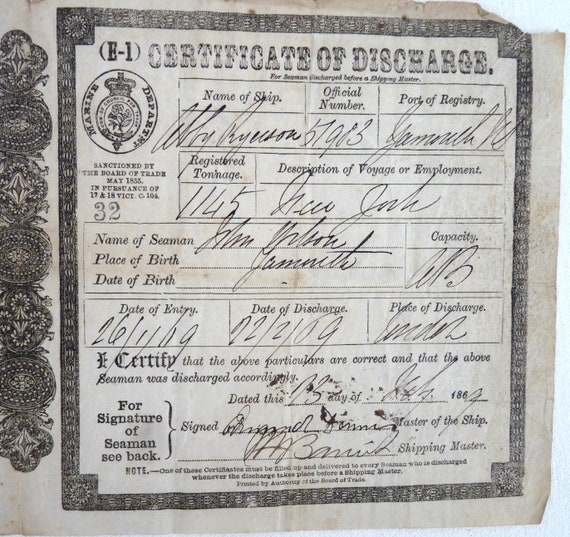 (E-1) CERTIFICATE OF DISCHARGE.
For Seaman discharged before a Shipping Master.
MARINE DEPARTMENT
SANCTIONED BY
THE BOARD OF TRADE
MAY 1855.
IN PURSUANCE OF
17 & 18 VICT. C. 104.
32
Name of Ship. Official Number. Port of Registry.
Abby Ryerson 57983 Yarmouth NS
Registered Tonnage. Description of Voyage or Employment.
1145 New York
Name of Seaman John Wilson Capacity.
Place of Birth Yarmouth AB
Date of Birth
Date of Entry. Date of Discharge. Place of Discharge.
22/2/69 London
I Certify that the above particulars are correct and that the above
Seaman was discharged accordingly.
Dated this day of 1869
For Signature of Seaman see back.
Signed Master of the Ship.
Shipping Master.
NOTE.—One of these Certificates must be filled up and delivered to every Seaman who is discharged
whenever the discharge takes place before a Shipping Master.
Printed by Authority of the Board of Trade.